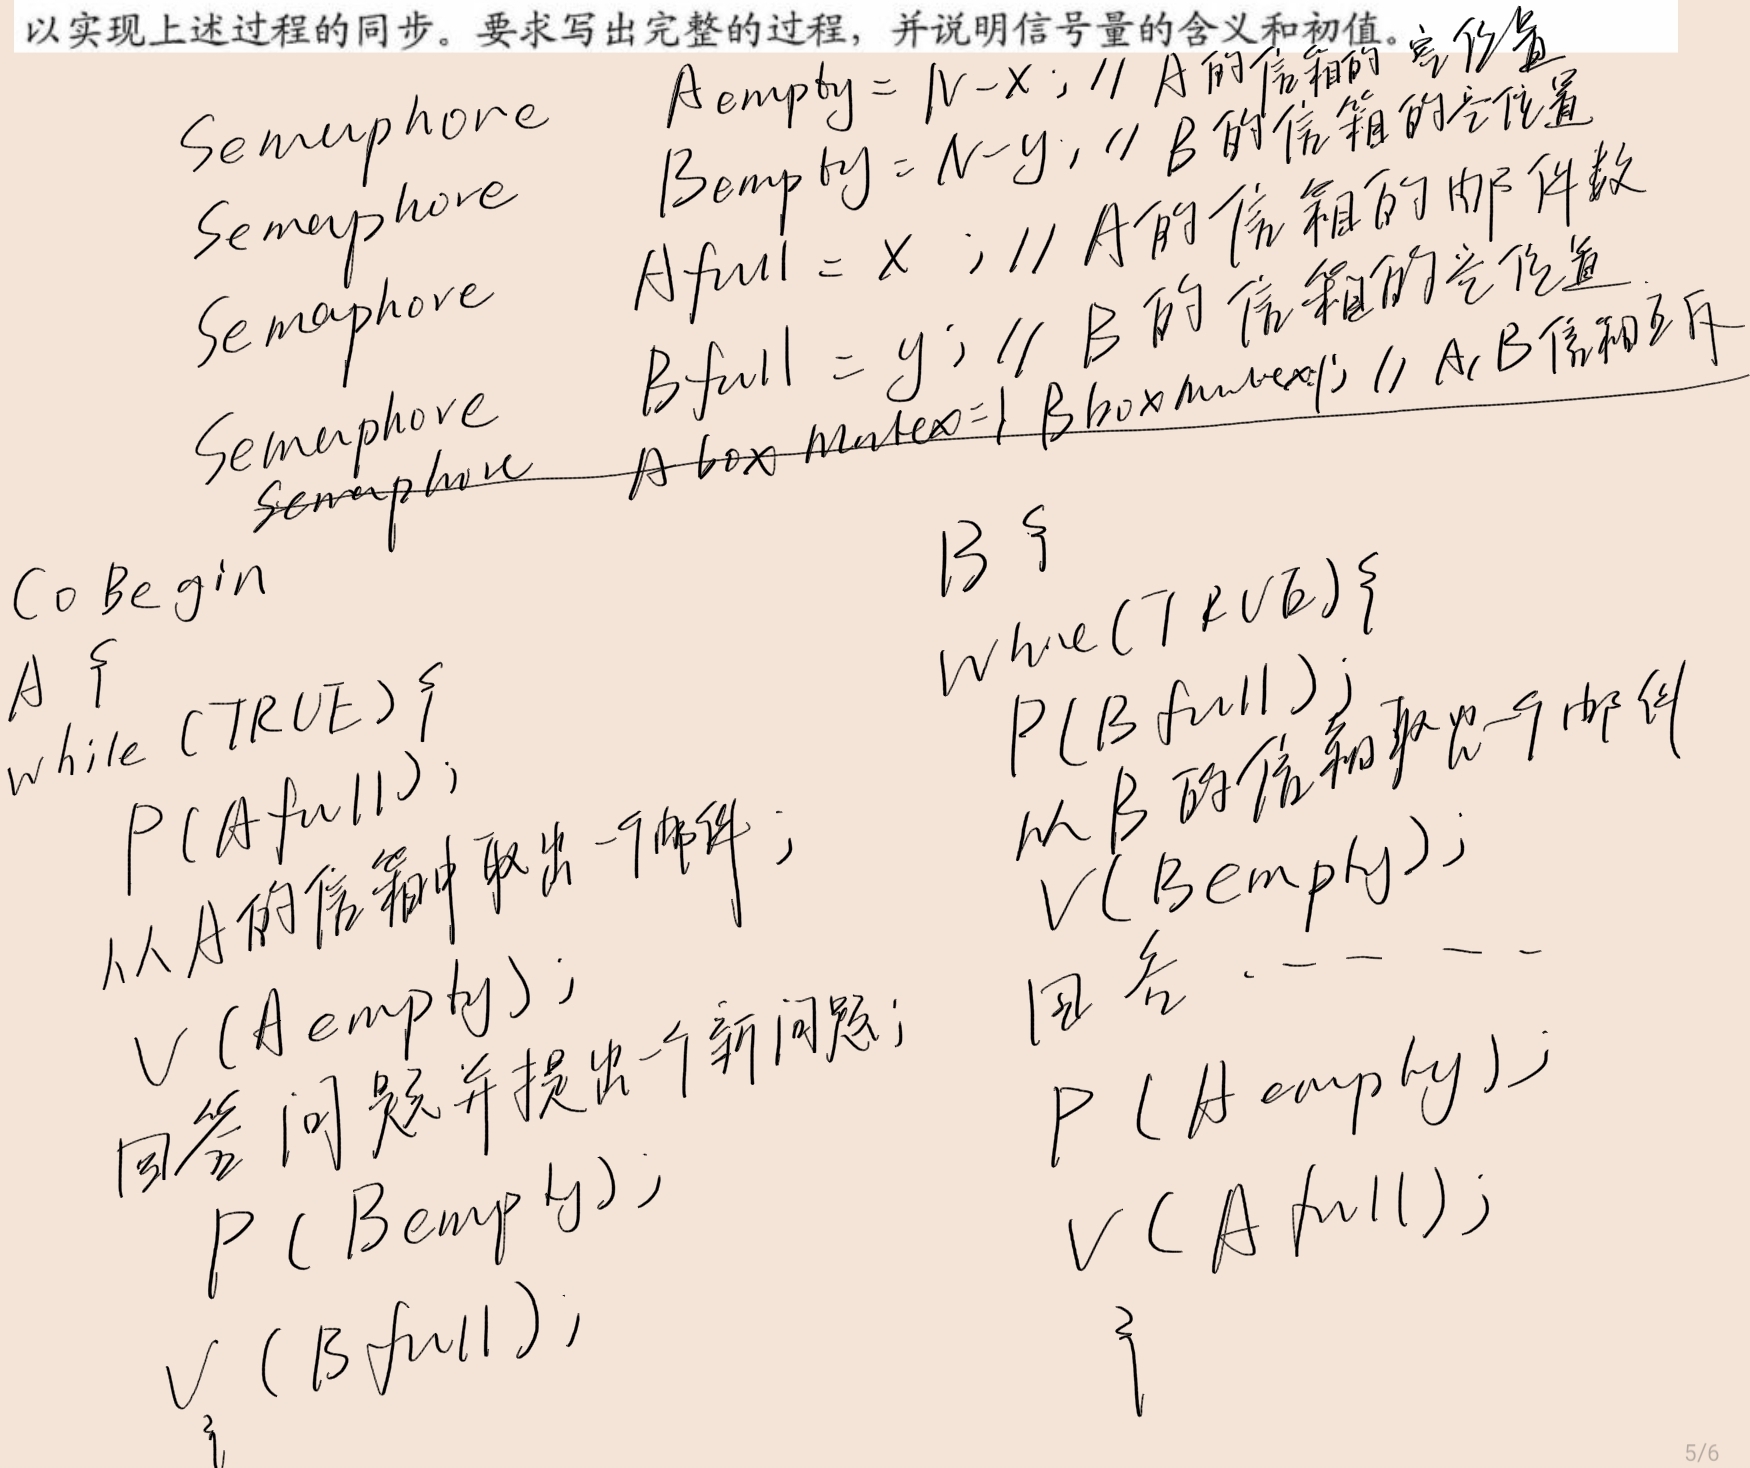 以实现上述过程的同步。要求写出完整的过程，并说明信号量的含义和初值。
Semaphore Aempty = N-x; // A的信箱的空位置
Semaphore Bempty = N-y; // B的信箱的空位置
Semaphore Afull = x; // A的信箱的邮件数
Semaphore Bfull = y; // B的信箱的空位置
Semaphore Abox mutex=1 Bboxmutex=1; // A,B信箱互斥
CoBegin
A {
while (TRUE) {
P(Afull);
从A的信箱中取出一个邮件;
V(Aempty);
回答问题并提出一个新问题;
P(Bempty);
V(Bfull);
}
B {
while(TRUE){
P(Bfull);
从B的信箱取出一个邮件
V(Bempty);
回答 . - - - - -
P(Aempty);
V(Afull);
}
5/6